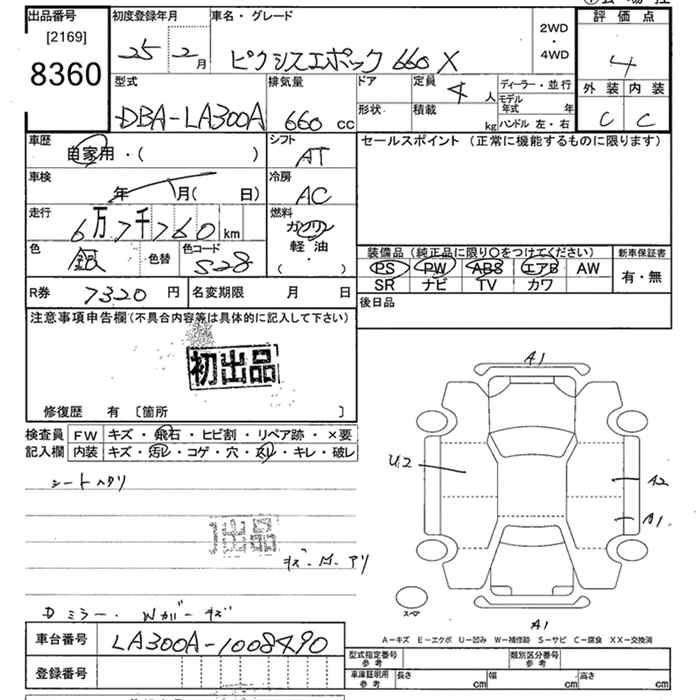 出品番号
[2169]
8360
初度登録年月
25 2月
車名・グレード
ピクシスエポック 660 X
2WD
・
4WD
評価点
4
外装 内装
C C
型式
DBA-LA300A
排気量
660 cc
ドア
形状
定員
4人
積載
kg
ディーラー・並行
モデル年式 年
ハンドル 左・右
車歴
自家用・( )
シフト
AT
セールスポイント (正常に機能するものに限ります)
車検
年 月( 日)
冷房
AC
走行
6万7千760km
燃料
ガソリン
軽油
( ・ )
色
銀
色替
色コード
S28
装備品 (純正品に限り○をつけてください)
PS PW ABS エアB AW
SR ナビ TV カワ
新車保証書
有・無
R券 7320円
名変期限 月 日
後日品
注意事項申告欄(不具合内容等は具体的に記入して下さい)
初出品
修復歴 有 〔箇所 〕
検査員
記入欄
FW キズ・飛石・ヒビ割・リペア跡・×要
内装 キズ・汚レ・コゲ・穴・スレ・キレ・破レ
シートヘタリ
出品
キズ・凹・アリ
Dミラー・Wガバーキズ
A1
U2
A2
A1
スペア
A1
A-キズ E-エクボ U-凹み W-補修跡 S-サビ C-腐食 XX-交換済
車台番号 LA300A-1008490
登録番号
型式指定番号
参考
類別区分番号
参考
車庫証明用
参考
長さ cm
幅 cm
高さ cm